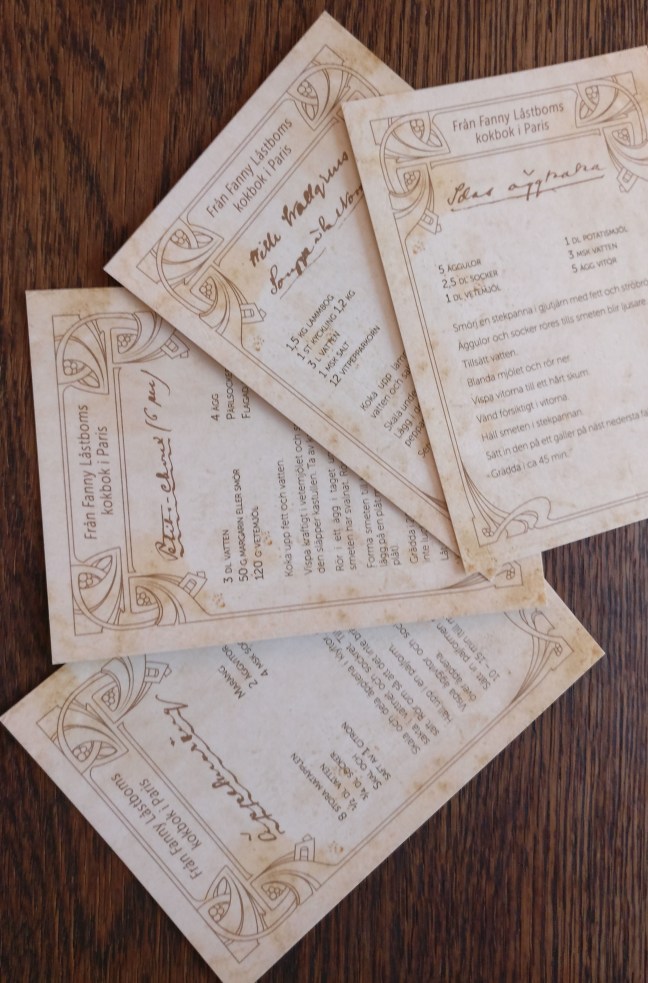 Från Fanny Låstboms
kokbok i Paris
Idas äggkaka
5 äggulor
2,5 dl socker
1 dl vetemjöl
1 dl potatismjöl
3 msk vatten
5 ägg vitor
Smörj en stekpanna i gjutjärn med fett och ströbrö
Äggulor och socker röres tills smeten blir ljusare.
Tillsätt vatten.
Blanda mjölet och rör ner.
Vispa vitorna till ett hårt skum.
Vänd försiktigt i vitorna.
Häll smeten i stekpannan.
Sätt in den på ett galler på näst nedersta fa
Grädda i ca 45 min.
Från Fanny Låstboms
kokbok i Paris
Ville Vallgrens
1,5 kg lammbog
1 st kyckling 1,2 kg
3 l vatten
1 msk salt
12 vitpepparkorn
Koka upp lam
vatten och sa
Skala under
Lägg i
Från Fanny Låstboms
kokbok i Paris
Petits-Choux (6 pers)
3 dl vatten
50 g margarin eller smör
120 g vetemjöl
4 ägg
Pärlsocke
Flagad
Koka upp fett och vatten.
Vispa kraftigt i vetemjölet och
den släpper kastrullen. Ta av
Rör i ett ägg i taget
smeten har svalnat.
Forma smeten
lägg på en plåt
plåt
Grädda
inte
Från Fanny Låstboms
kokbok i Paris
Äppelmaräng
8 stora mataäpplen
½ dl vatten
¾ dl socker
Skal och
saft av 1 citron
Maräng
2 äggvitor
4 msk so
Skala och dela äpplena i klyftor
sakta i vattnet och sockret.
saft. Rör om så att det inte
Häll upp i en pajform.
Vispa äggvitor och
över äpplena.
Sätt in pajformen
10-15 min